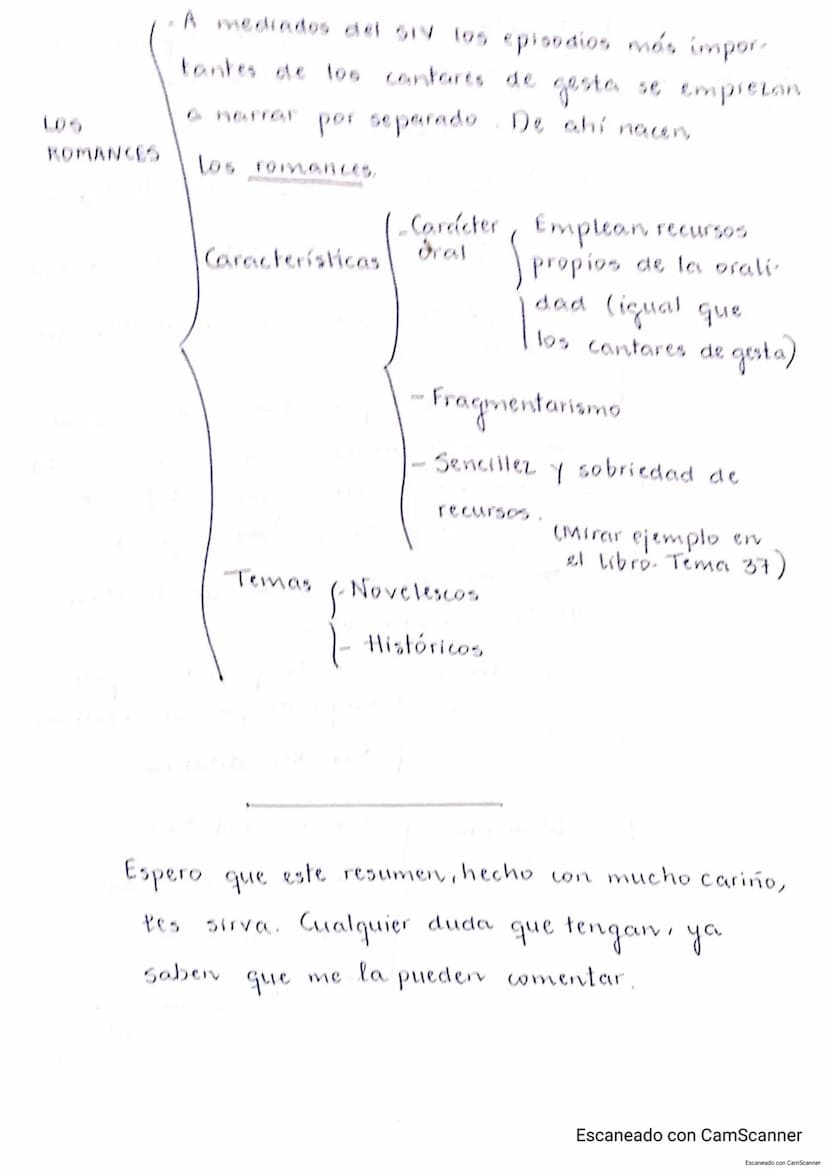 - A mediados del SIV los episodios más impor-
tantes de los cantares de gesta se empiezan
a narrar por separado. De ahí nacen
los romances.
LOS
ROMANCES
Características
- Carácter
oral
Emplean recursos
propios de la orali-
dad (igual que
los cantares de gesta)
- Fragmentarismo
- Sencillez y sobriedad de
recursos.
(Mirar ejemplo en
el libro. Tema 37)
Temas
- Novelescos
- Históricos
Espero que este resumen, hecho con mucho cariño,
les sirva. Cualquier duda que tengan, ya
saben que me la pueden comentar.
Escaneado con CamScanner
Escaneado con CamScanner